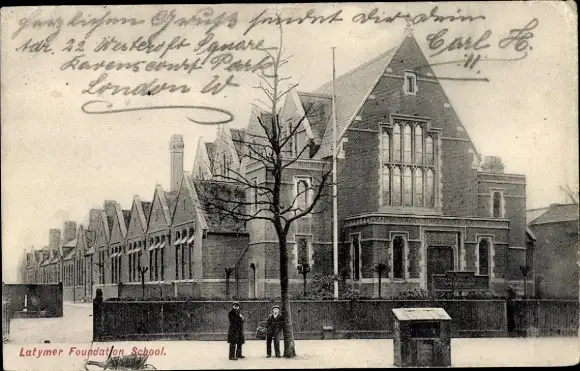 herzlichen Gruß sendet Dir dein
Adr. 22 Westcroft Square Carl H.
Ravenscourt Park
London W
Latymer Foundation School.